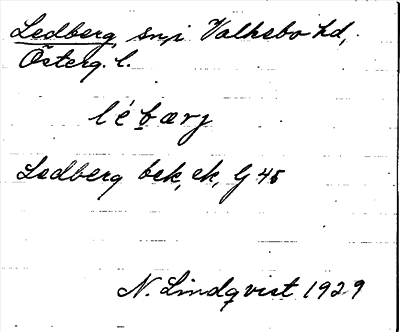 Ledberg, sn, i Valkebo hd,
Österg. l.
lé bærj
Ledberg bek, ek, G 45
N. Lindqvist 1929